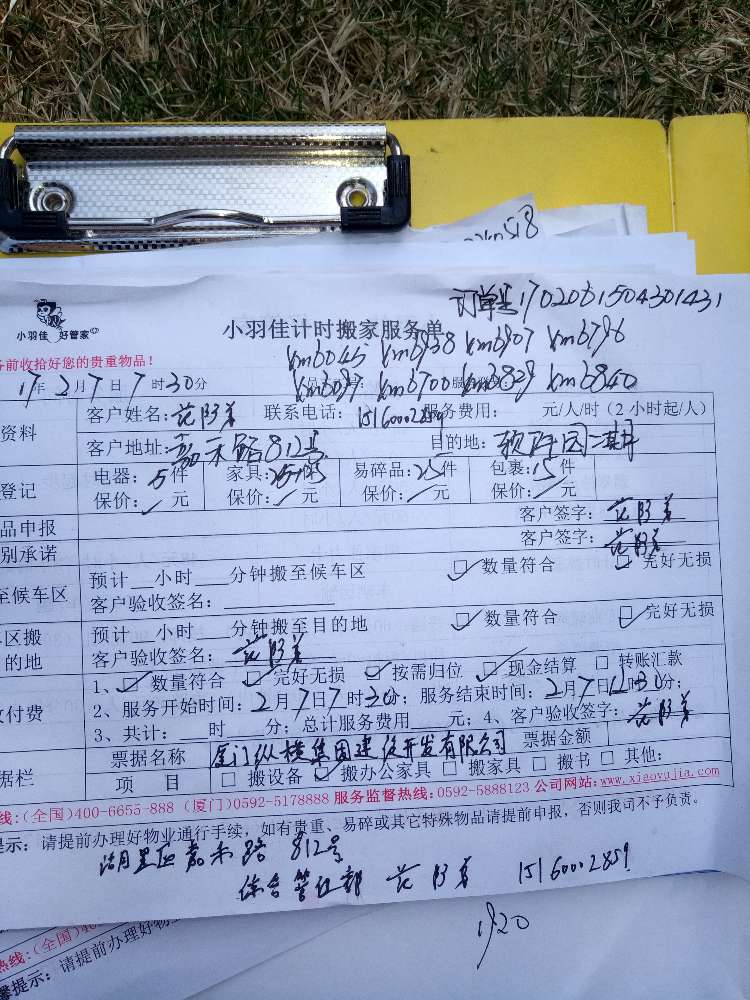 订单号1702061504301431
小羽佳 好管家
小羽佳计时搬家服务单
前收拾好您的贵重物品！
km6045 km6938 km6907 km6796
km6700 km6829 km6840
17年2月7日7时30分
资料
客户姓名： 联系电话：15160002859 服务费用： 元/人/时（2小时起/人）
客户地址：嘉禾路812号 目的地：二期
登记
电器：5件 家具：件 易碎品：25件 包裹：15件
保价： 元 保价： 元 保价： 元 保价： 元
品申报
客户签字：
别承诺
客户签字：
至候车区
预计 小时 分钟搬至候车区 数量符合 完好无损
客户验收签名：
区搬
的地
预计 小时 分钟搬至目的地 数量符合 完好无损
客户验收签名：
付费
1、数量符合 完好无损 按需归位 现金结算 转账汇款
2、服务开始时间：2月7日7时30分；服务结束时间：2月7日12时30分；
3、共计： 时 分；总计服务费用 元；4、客户验收签字：
据栏
票据名称 厦门纵横集团建设开发有限公司 票据金额
项 目 搬设备 搬办公家具 搬家具 搬书 其他：
线：(全国)400-6655-888 (厦门)0592-5178888 服务监督热线：0592-5888123 公司网站：www.xiaoyujia.com
提示：请提前办理好物业通行手续，如有贵重、易碎或其它特殊物品请提前申报，否则我司不予负责。
湖里区嘉禾路 812号
综合管理部 15160002859
1920
热线：(全国)
馨提示：请提前办理好物